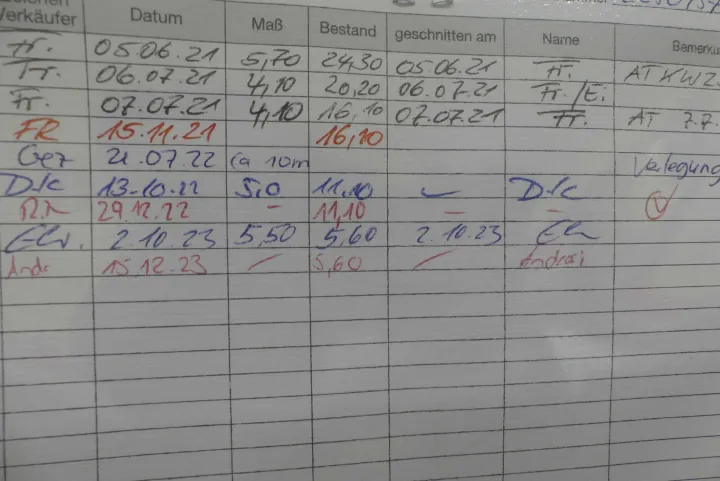 Verkäufer Datum Maß Bestand geschnitten am Name
Fr. 05.06.21 5,70 24,30 05.06.21 Fr.
Fr. 06.07.21 4,10 20,20 06.07.21 Fr./Ei.
Fr. 07.07.21 4,10 16,10 07.07.21 Fr. AT 7.7.
FR 15.11.21 16,10
21.07.22 ca 10m Verlegung
Dk 13.10.22 5,0 11,10 Dk
29.12.22 - 11,10 - -
2.10.23 5,50 5,60 2.10.23
Andr 15.12.23 5,60